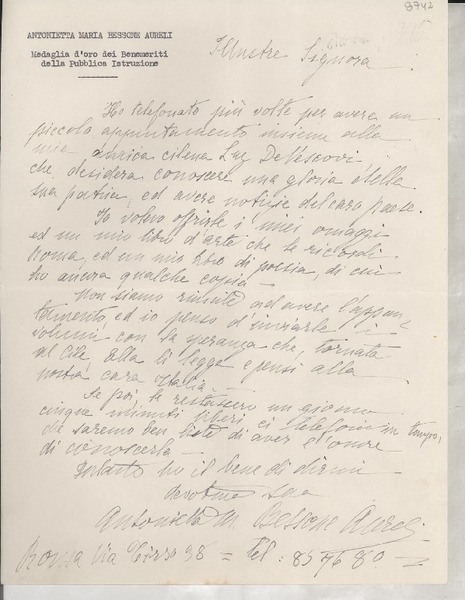 8742
ANTONIETTA MARIA BESSONE AURELI
Medaglia d'oro dei Benemeriti
della Pubblica Istruzione
Illustre Signora
Ho telefonato più volte per avere un
piccolo appuntamento insieme alla
mia amica cilena Luz De Vescovi
che desidera conoscere una gloria della
sua patria, ed avere notizie del caro paese.
Io volevo offrirle i miei omaggi
ed un mio libro d'arte che le ricordi
Roma, ed un mio libro di poesia, di cui
ho ancora qualche copia.
Non siamo riuscite ad avere l'appun
tamento ed io penso d'inviarle i
volumi con la speranza che, tornata
nel Cile, Ella li legga e pensi alla
nostra cara Italia.
Se poi, le restassero un giorno
cinque minuti liberi, ci telefoni in tempo,
che saremo ben liete di aver l'onore
di conoscerla.
Intanto ho il bene di dirmi
devotma Sua
Antonietta M. Bessone Aureli
Roma Via Tirso 98 = Tel: